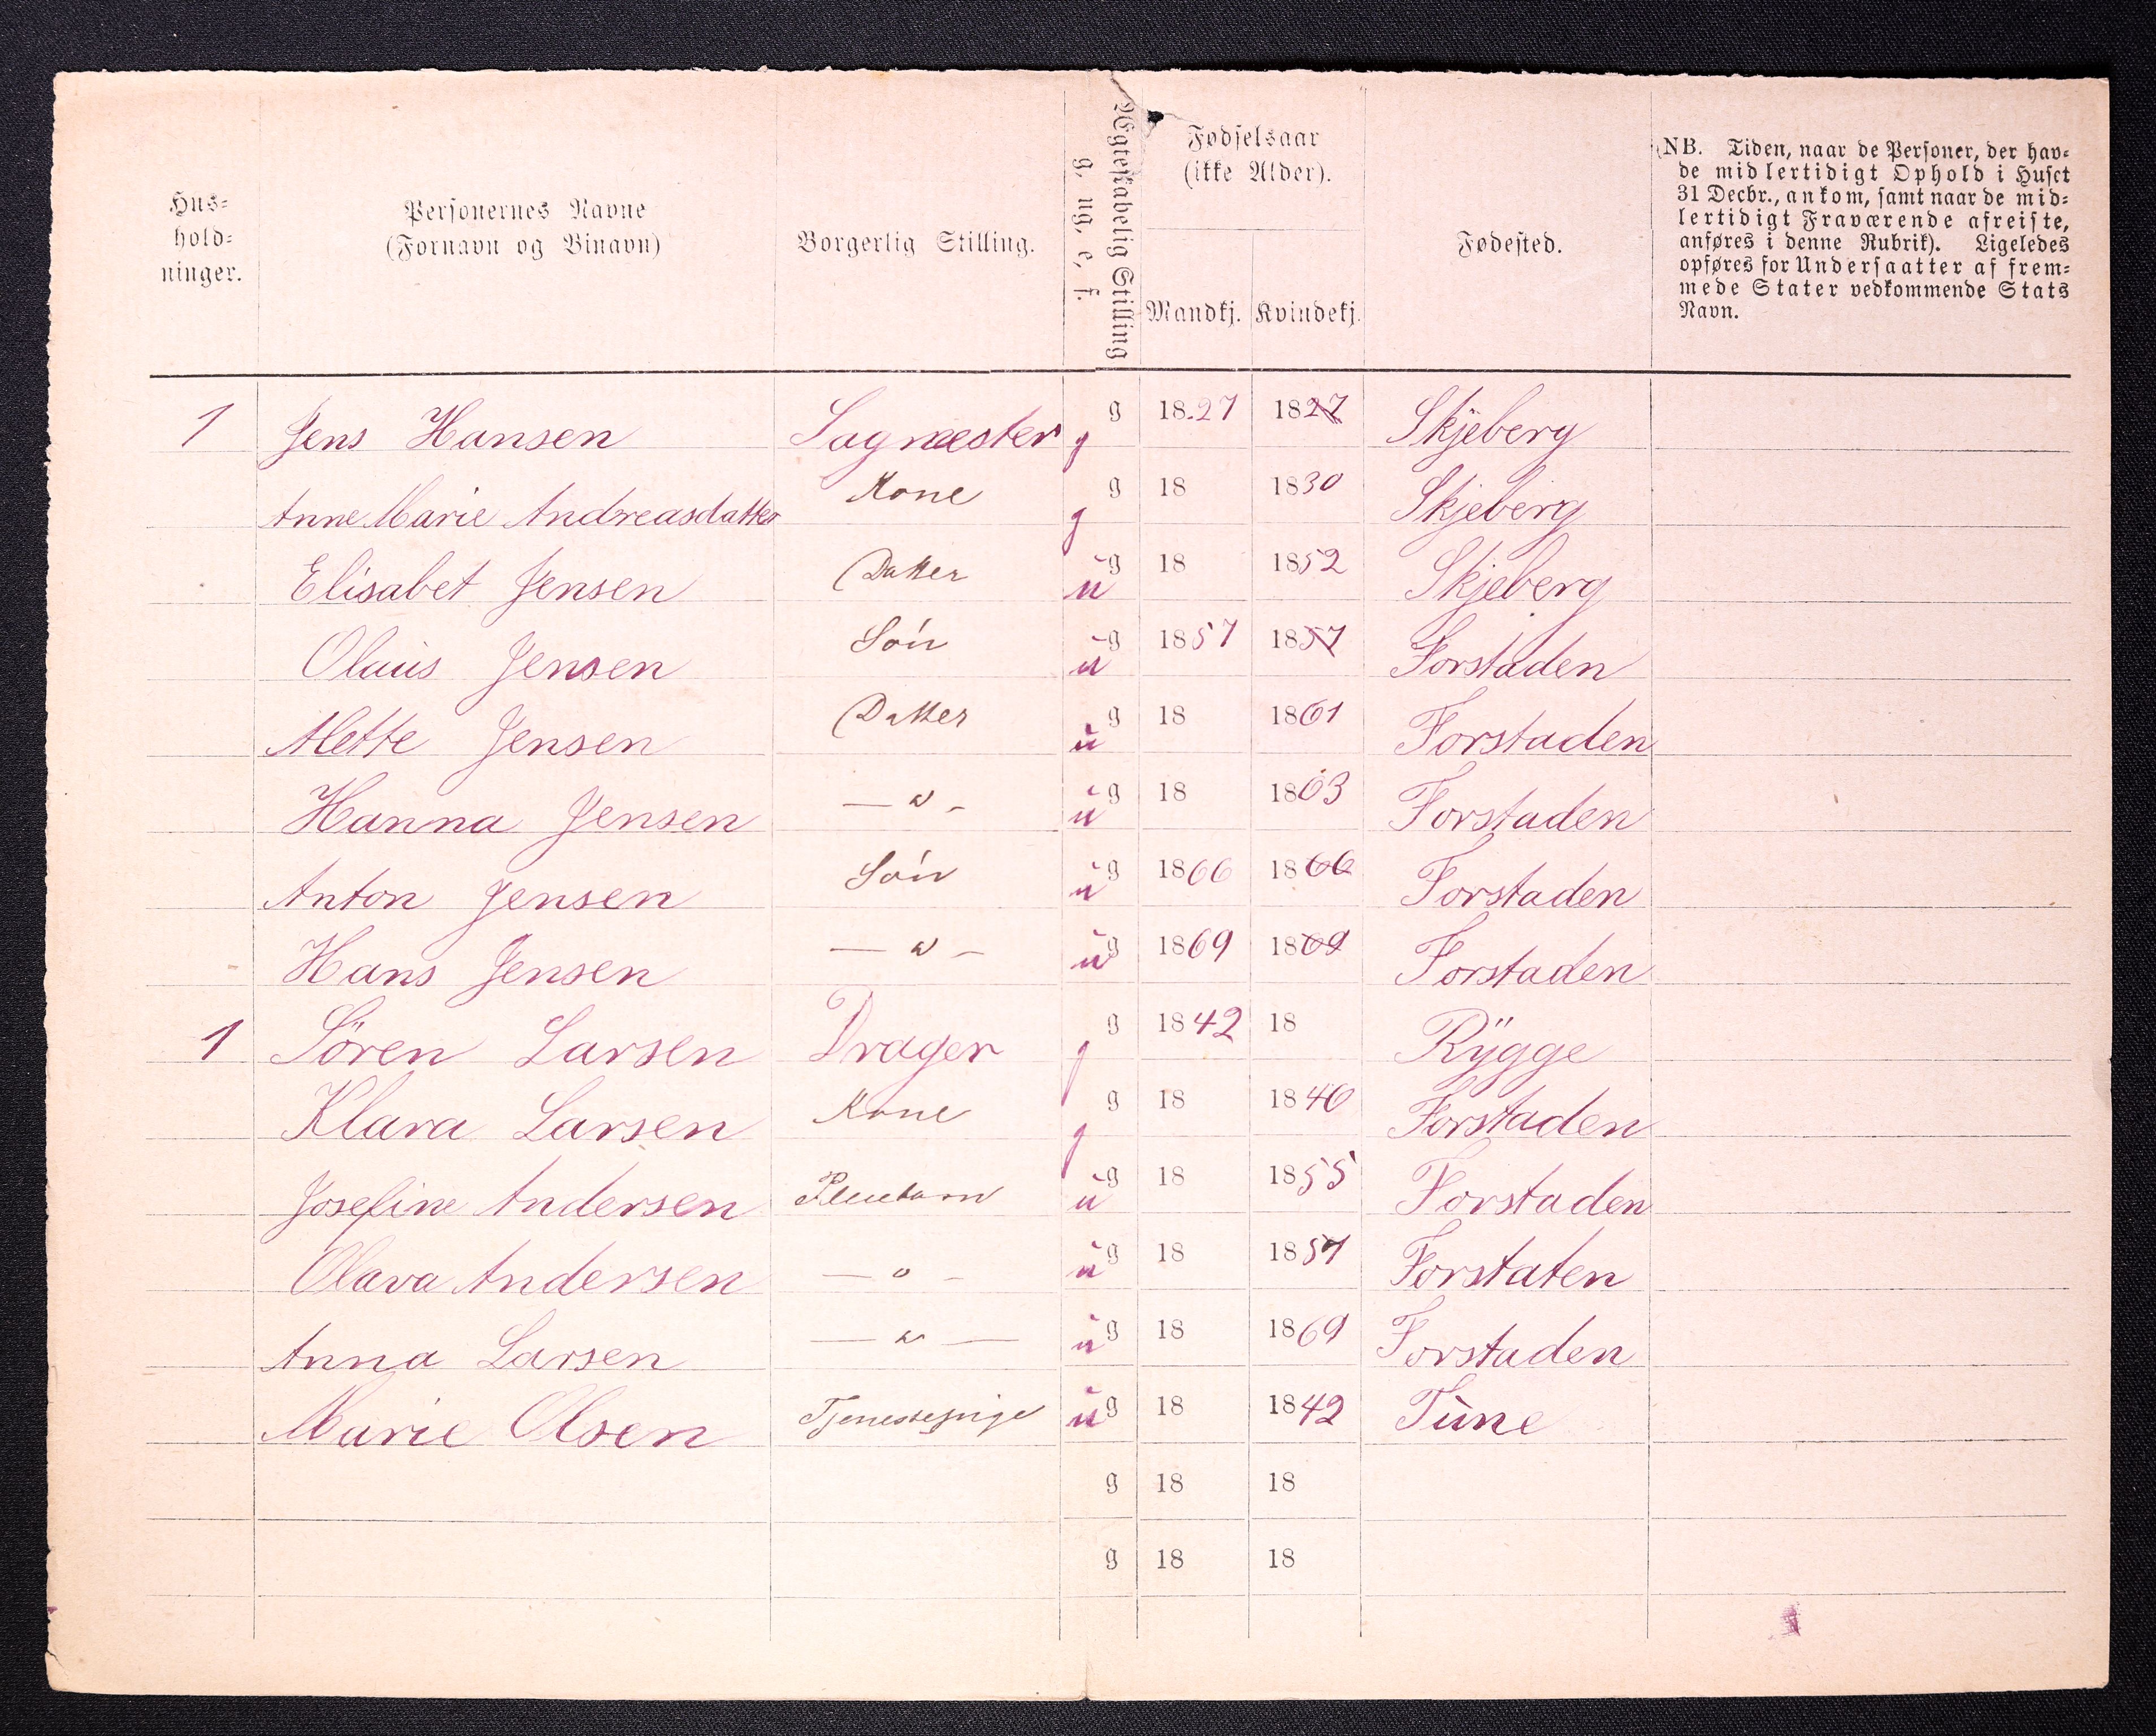 Hus-
hold-
ninger.
Personernes Navne
(Fornavn og Binavn)
Borgerlig Stilling.
Ægteskabelig Stilling
g, ug, e, f.
Fødselsaar
(ikke Alder).
Mandkj. Kvindekj.
Fødested.
(NB. Tiden, naar de Personer, der hav-
de midlertidigt Ophold i Huset
31 Decbr., ankom, samt naar de mid-
lertidigt Fraværende afreiste,
anføres i denne Rubrik). Ligeledes
opføres for Undersaatter af frem-
mede Stater vedkommende Stats
Navn.
1 Jens Hansen Sagmester g g 18.27 1827 Skjeberg
Anne Marie Andreasdatter Kone g g 18 1830 Skjeberg
Elisabet Jensen Datter u g 18 1852 Skjeberg
Olaus Jensen Sön u g 1857 1857 Forstaden
Mette Jensen Datter u g 18 1861 Forstaden
Hanna Jensen — " — u g 18 1863 Forstaden
Anton Jensen Sön u g 1866 1866 Forstaden
Hans Jensen — " — u g 1869 1869 Forstaden
1 Sören Larsen Drager g g 1842 18 Rygge
Klara Larsen Kone g g 18 1840 Forstaden
Josefine Andersen u g 18 1855 Forstaden
Olava Andersen — " — u g 18 1857 Forstaten
Anna Larsen — " — u g 18 1869 Forstaden
Marie Olsen Tjenestepige u g 18 1842 Tune
g 18 18
g 18 18